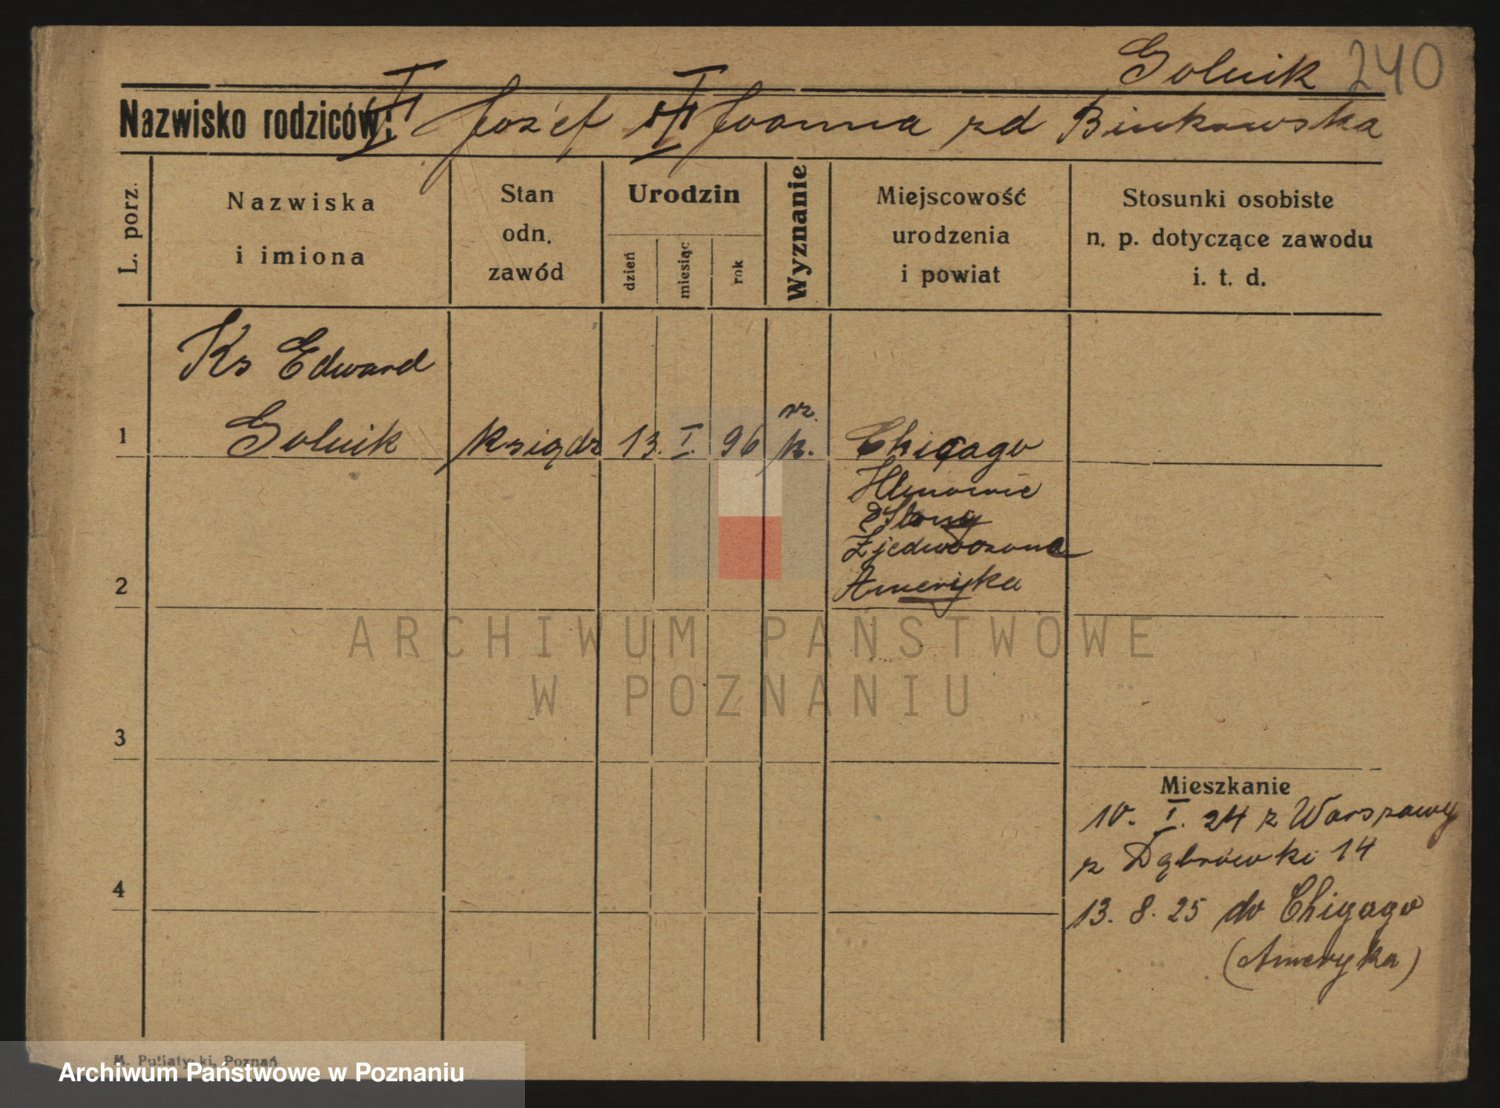 Golnik 240
Nazwisko rodziców: Józef i Joanna zd Binkowska
L. porz.
Nazwiska
i imiona
Stan
odn.
zawód
Urodzin
dzień
miesiąc
rok
Wyznanie
Miejscowość
urodzenia
i powiat
Stosunki osobiste
n. p. dotyczące zawodu
i. t. d.
Ks Edward
1 Golnik ksiądz 13. I. 96 rz. k. Chicago
Stany
Zjednoczone
2 Ameryka
ARCHIWUM PAŃSTWOWE
W POZNANIU
3
Mieszkanie
10. I. 24 z Warszawy
z Dąbrówki 14
4
13. 8. 25 do Chigago
(Ameryka)
M. Putiatycki, Poznań
Archiwum Państwowe w Poznaniu